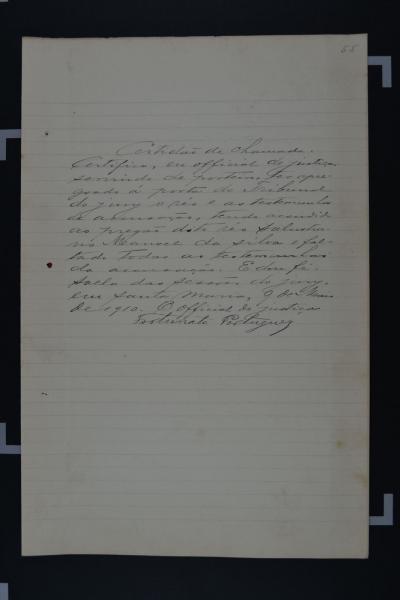 55
Certidão de chamada.
Certifico, eu official de justiça
servindo de porteiro, ter apre-
goado á porta do Tribunal
do jury o réo e as testemunhas
de accusação, tendo acudido
ao pregão o réo Salustia-
no Manoel da Silva e fal-
tado todas as testemunhas
da accusação. E dou fé.
Salla das sessões do jury,
em Santa Maria, 9 de
de 1910. O official de justiça
Fortunato Portuguez